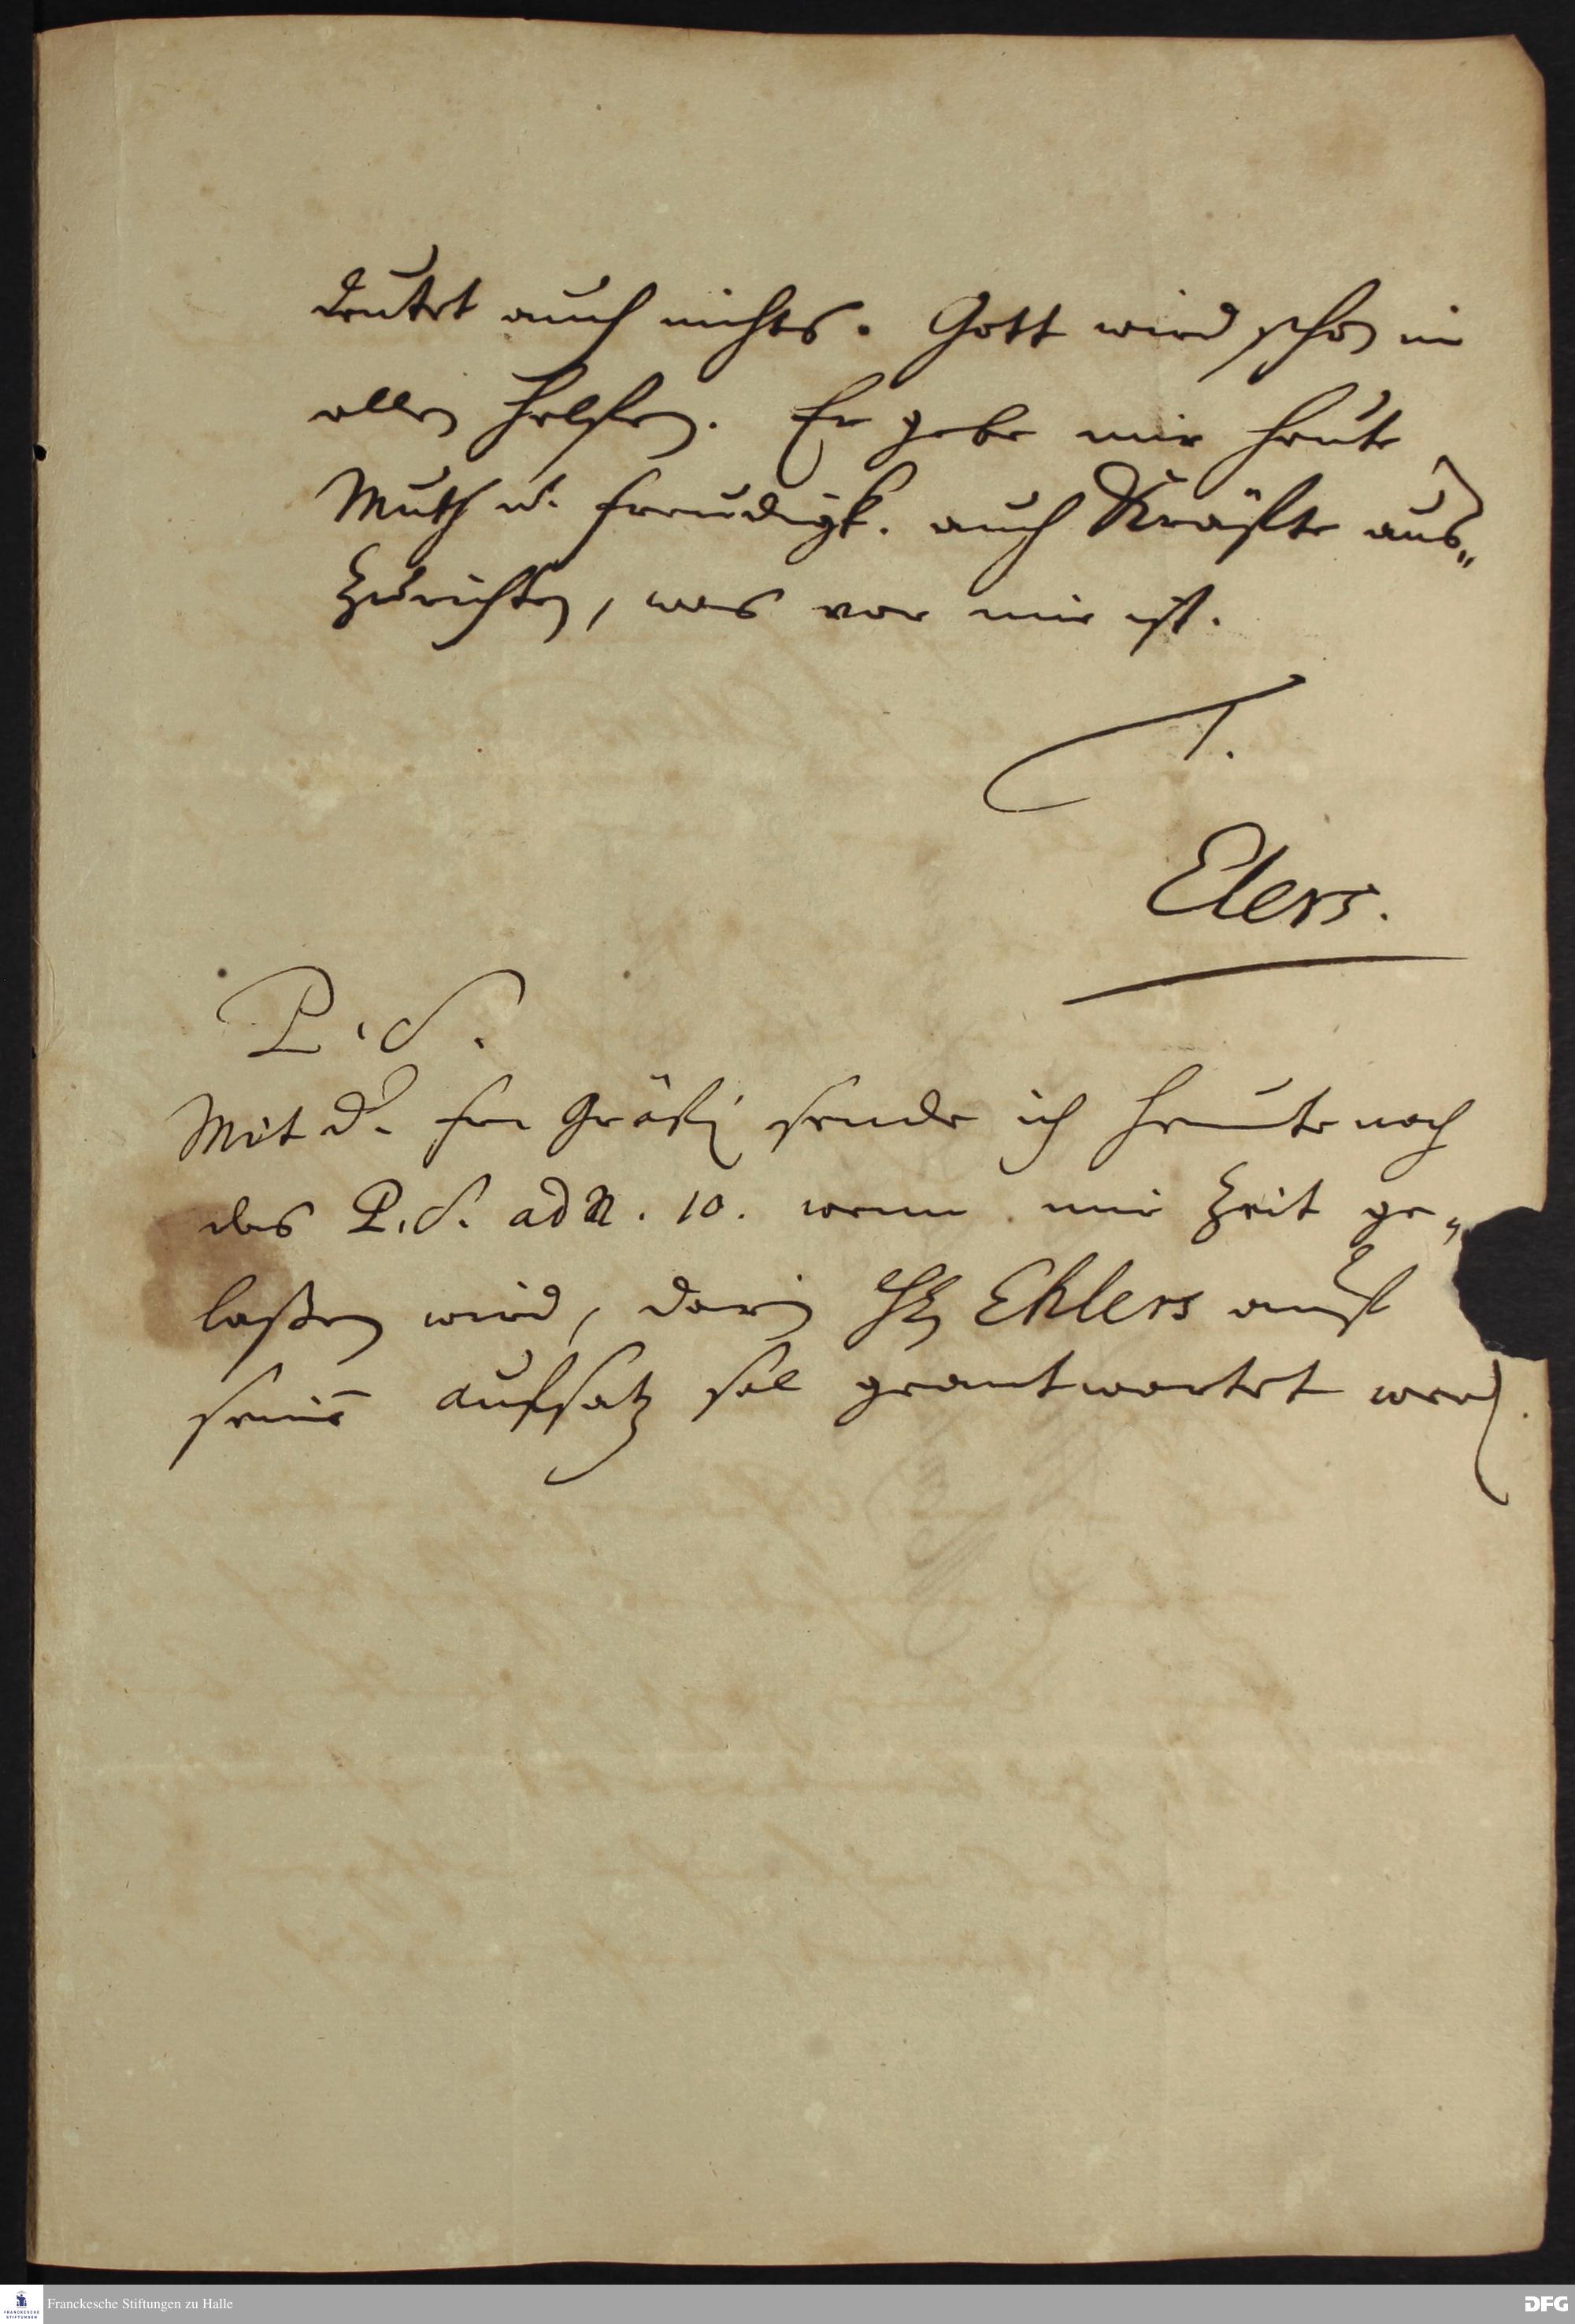 deutet auch nichts. Gott wird schon in
allen helffen. Er gebe mir heute
Muth u. freudigk. auch Kräffte aus„
zurichten, was vor mir ist.
T.
Elers.
P. S.
Mit d. sende ich heute noch
das P. S. ad n. 10. wenn mir Zeit ge„
laßen wird, darin H. Ehlers auff
seinen auffsatz sol geantwortet werd.
Franckesche Stiftungen zu Halle
FRANCKESCHE STIFTUNGEN
DFG